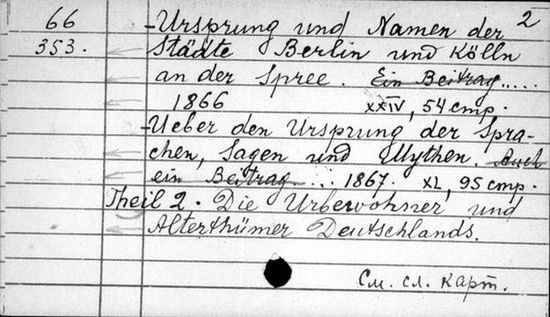 2
66 - Ursprung und Namen der
353. Städte Berlin und Kölln
an der Spree. Ein Beitrag.....
1866 XXIV, 54 стр.
- Ueber den Ursprung der Spra-
chen, Sagen und Mythen. Auch
ein Beitrag... 1867. XL, 95 стр.
Theil 2. Die Urbewohner und
Alterthümer Deutschlands.
См. сл. карт.